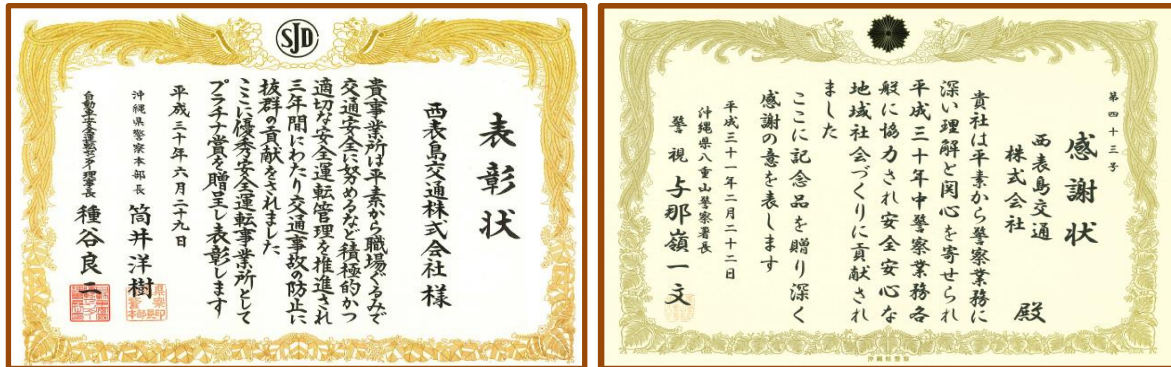 SJD
表彰状
西表島交通株式会社様
貴事業所は平素から職場ぐるみで
交通安全に努めるなど積極的かつ
適切な安全運転管理を推進され
三年間にわたり交通事故の防止に
抜群の貢献をされました
ここに優秀安全運転事業所として
プラチナ賞を贈呈し表彰します
平成三十年六月二十九日
沖縄県警察本部長 筒井洋樹
自動車安全運転センター理事長 種谷良二
第四十三号
感謝状
西表島交通
株式会社 殿
貴社は平素から警察業務に
深い理解と関心を寄せられ
平成三十年中警察業務各
般に協力され安全安心な
地域社会づくりに貢献され
ました
ここに記念品を贈り深く
感謝の意を表します
平成三十一年二月二十二日
沖縄県八重山警察署長
警視 与那嶺一文
沖縄県警察